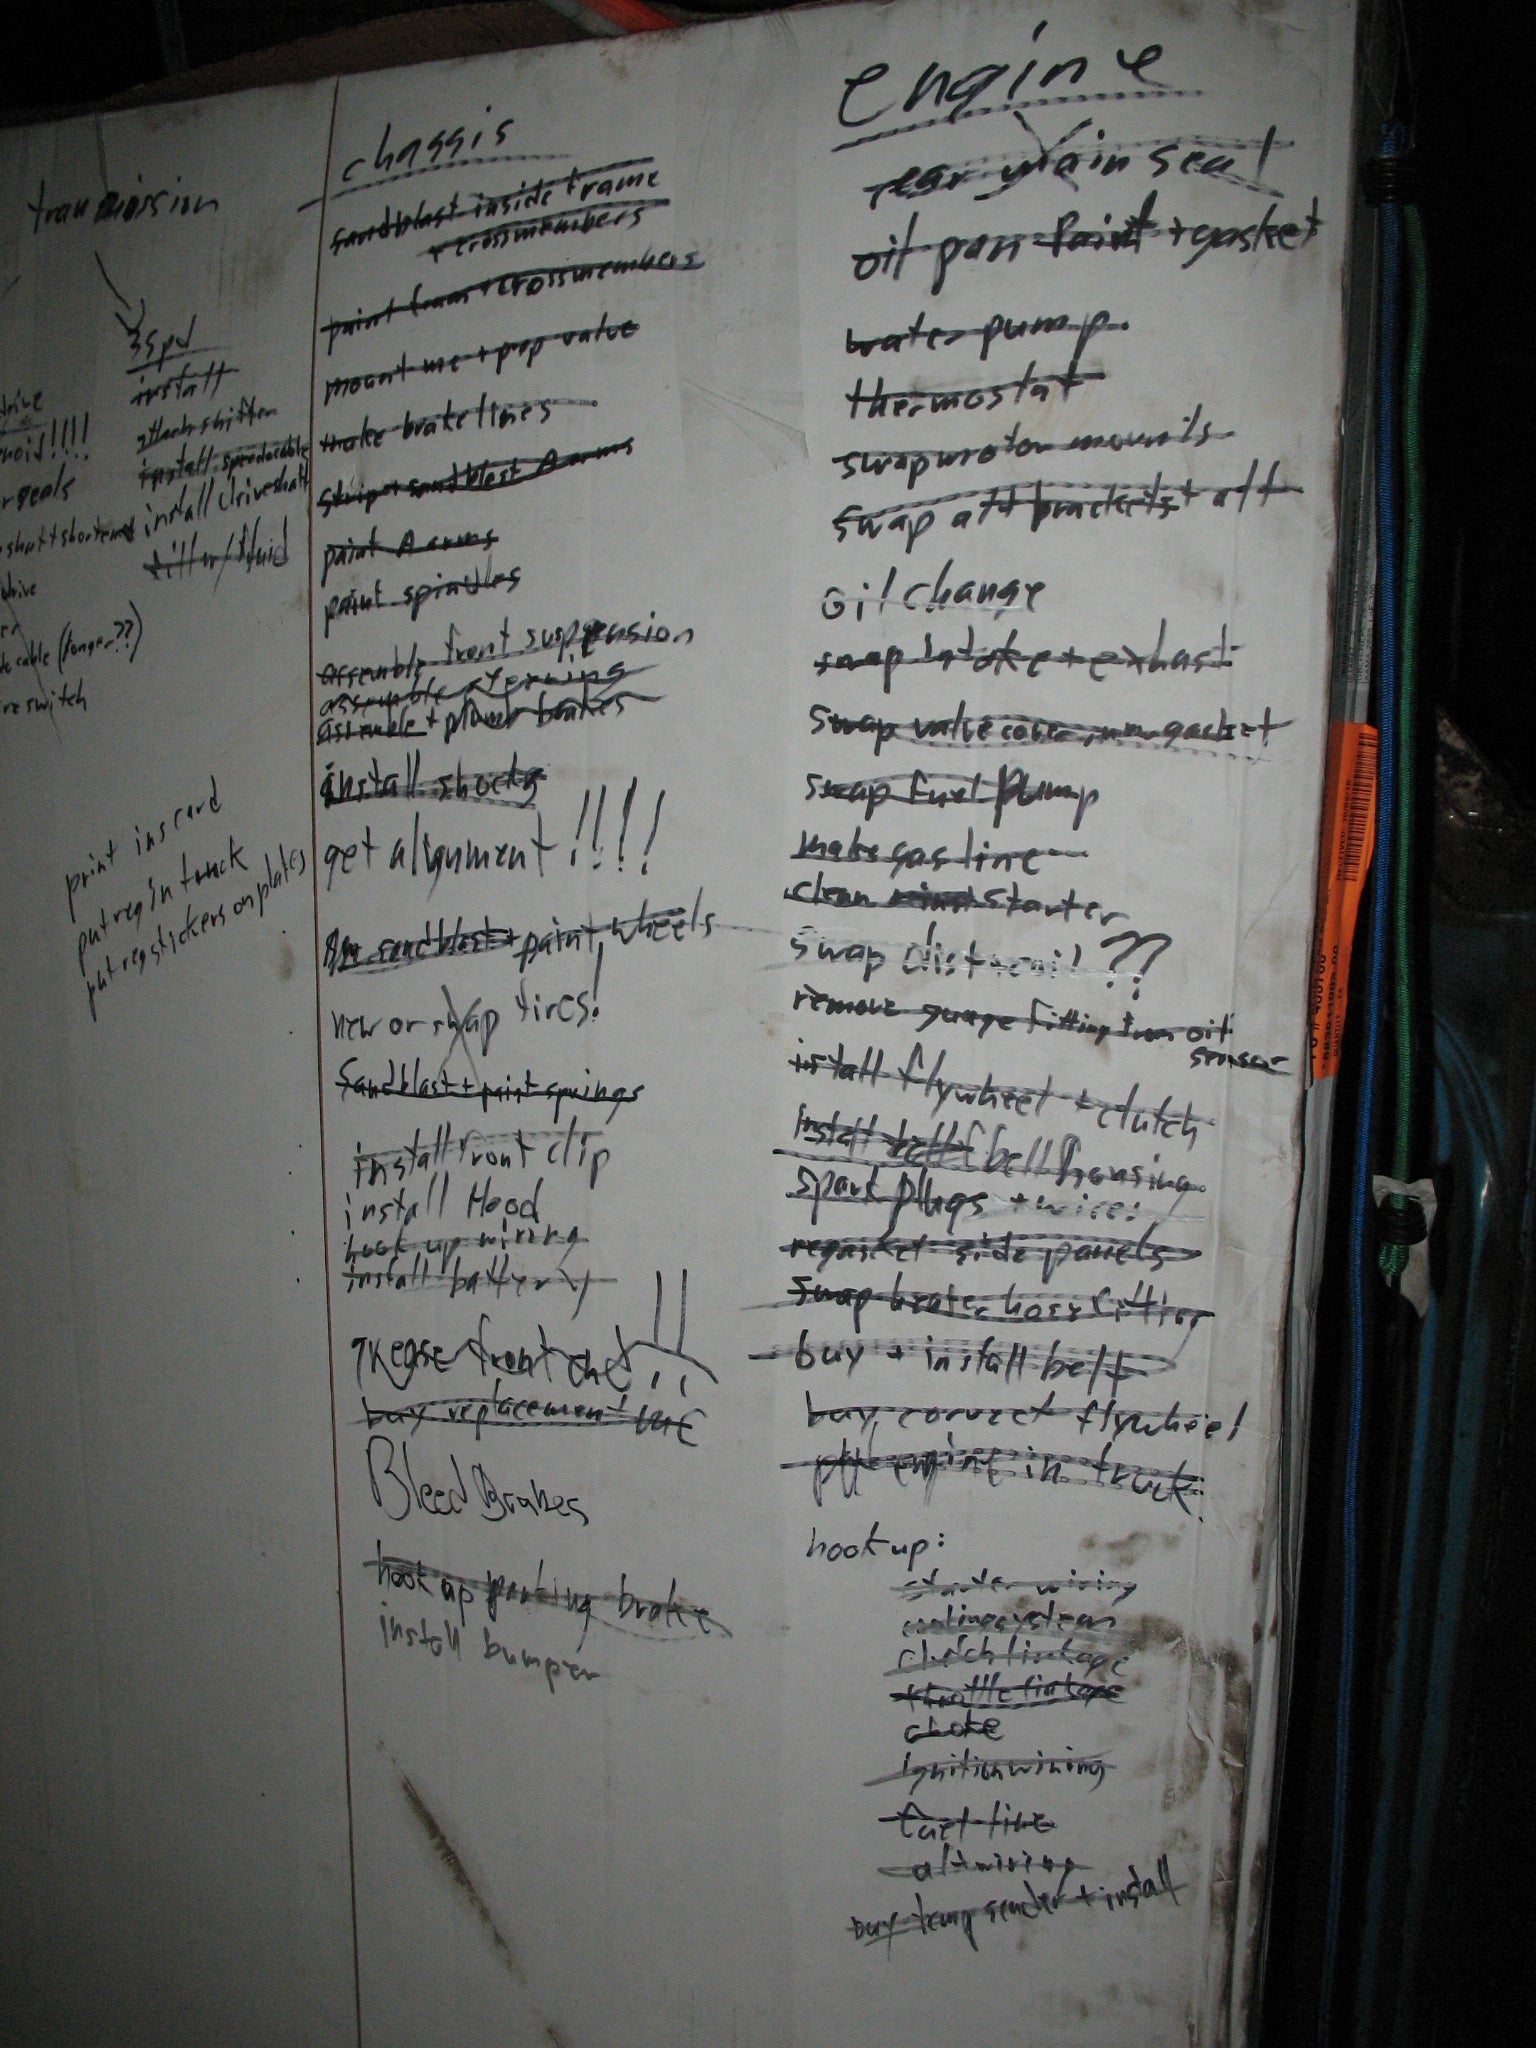 transmission
3spd
install
attach shifter
install speedo cable
install driveshaft
fill w/fluid
drive
noid!!!!
r seals
shaft shortened
drive
er
cable (longer??)
switch
print ins card
put reg in truck
put reg stickers on plates
chassis
sandblast inside frame
+ crossmembers
paint fram + crossmembers
mount mc + prop valve
make brakelines
strip + sandblest A arms
paint A arms
paint spindles
assemble front suspension
assemble steering
assemble + plumb brakes
install shocks
get alignment!!!!
sandblast + paint wheels
new or swap tires!
Sandblast + paint springs
install front clip
install Hood
hook up wiring
install battery
grease front end!!
buy replacement MC
Bleed Brakes
hook up parking brake
install bumper
engine
rear main seal
oil pan paint + gasket
water pump
thermostat
swap motor mounts
swap alt brackets + alt
oil change
swap intake + exhast
swap valve cover, new gasket
swap fuel pump
make gas line
clean paint starter
swap dist + coil??
remove guage fitting from oil
sensor
install flywheel + clutch
install bell housing
spark plugs + wires
regasket side panels
swap heater hose fitting
buy + install belt
buy correct flywheel
put engine in truck
hook up:
starter wiring
cooling system
clutch linkage
throttle linkage
choke
ignition wiring
fuel line
alt wiring
buy temp sender + install